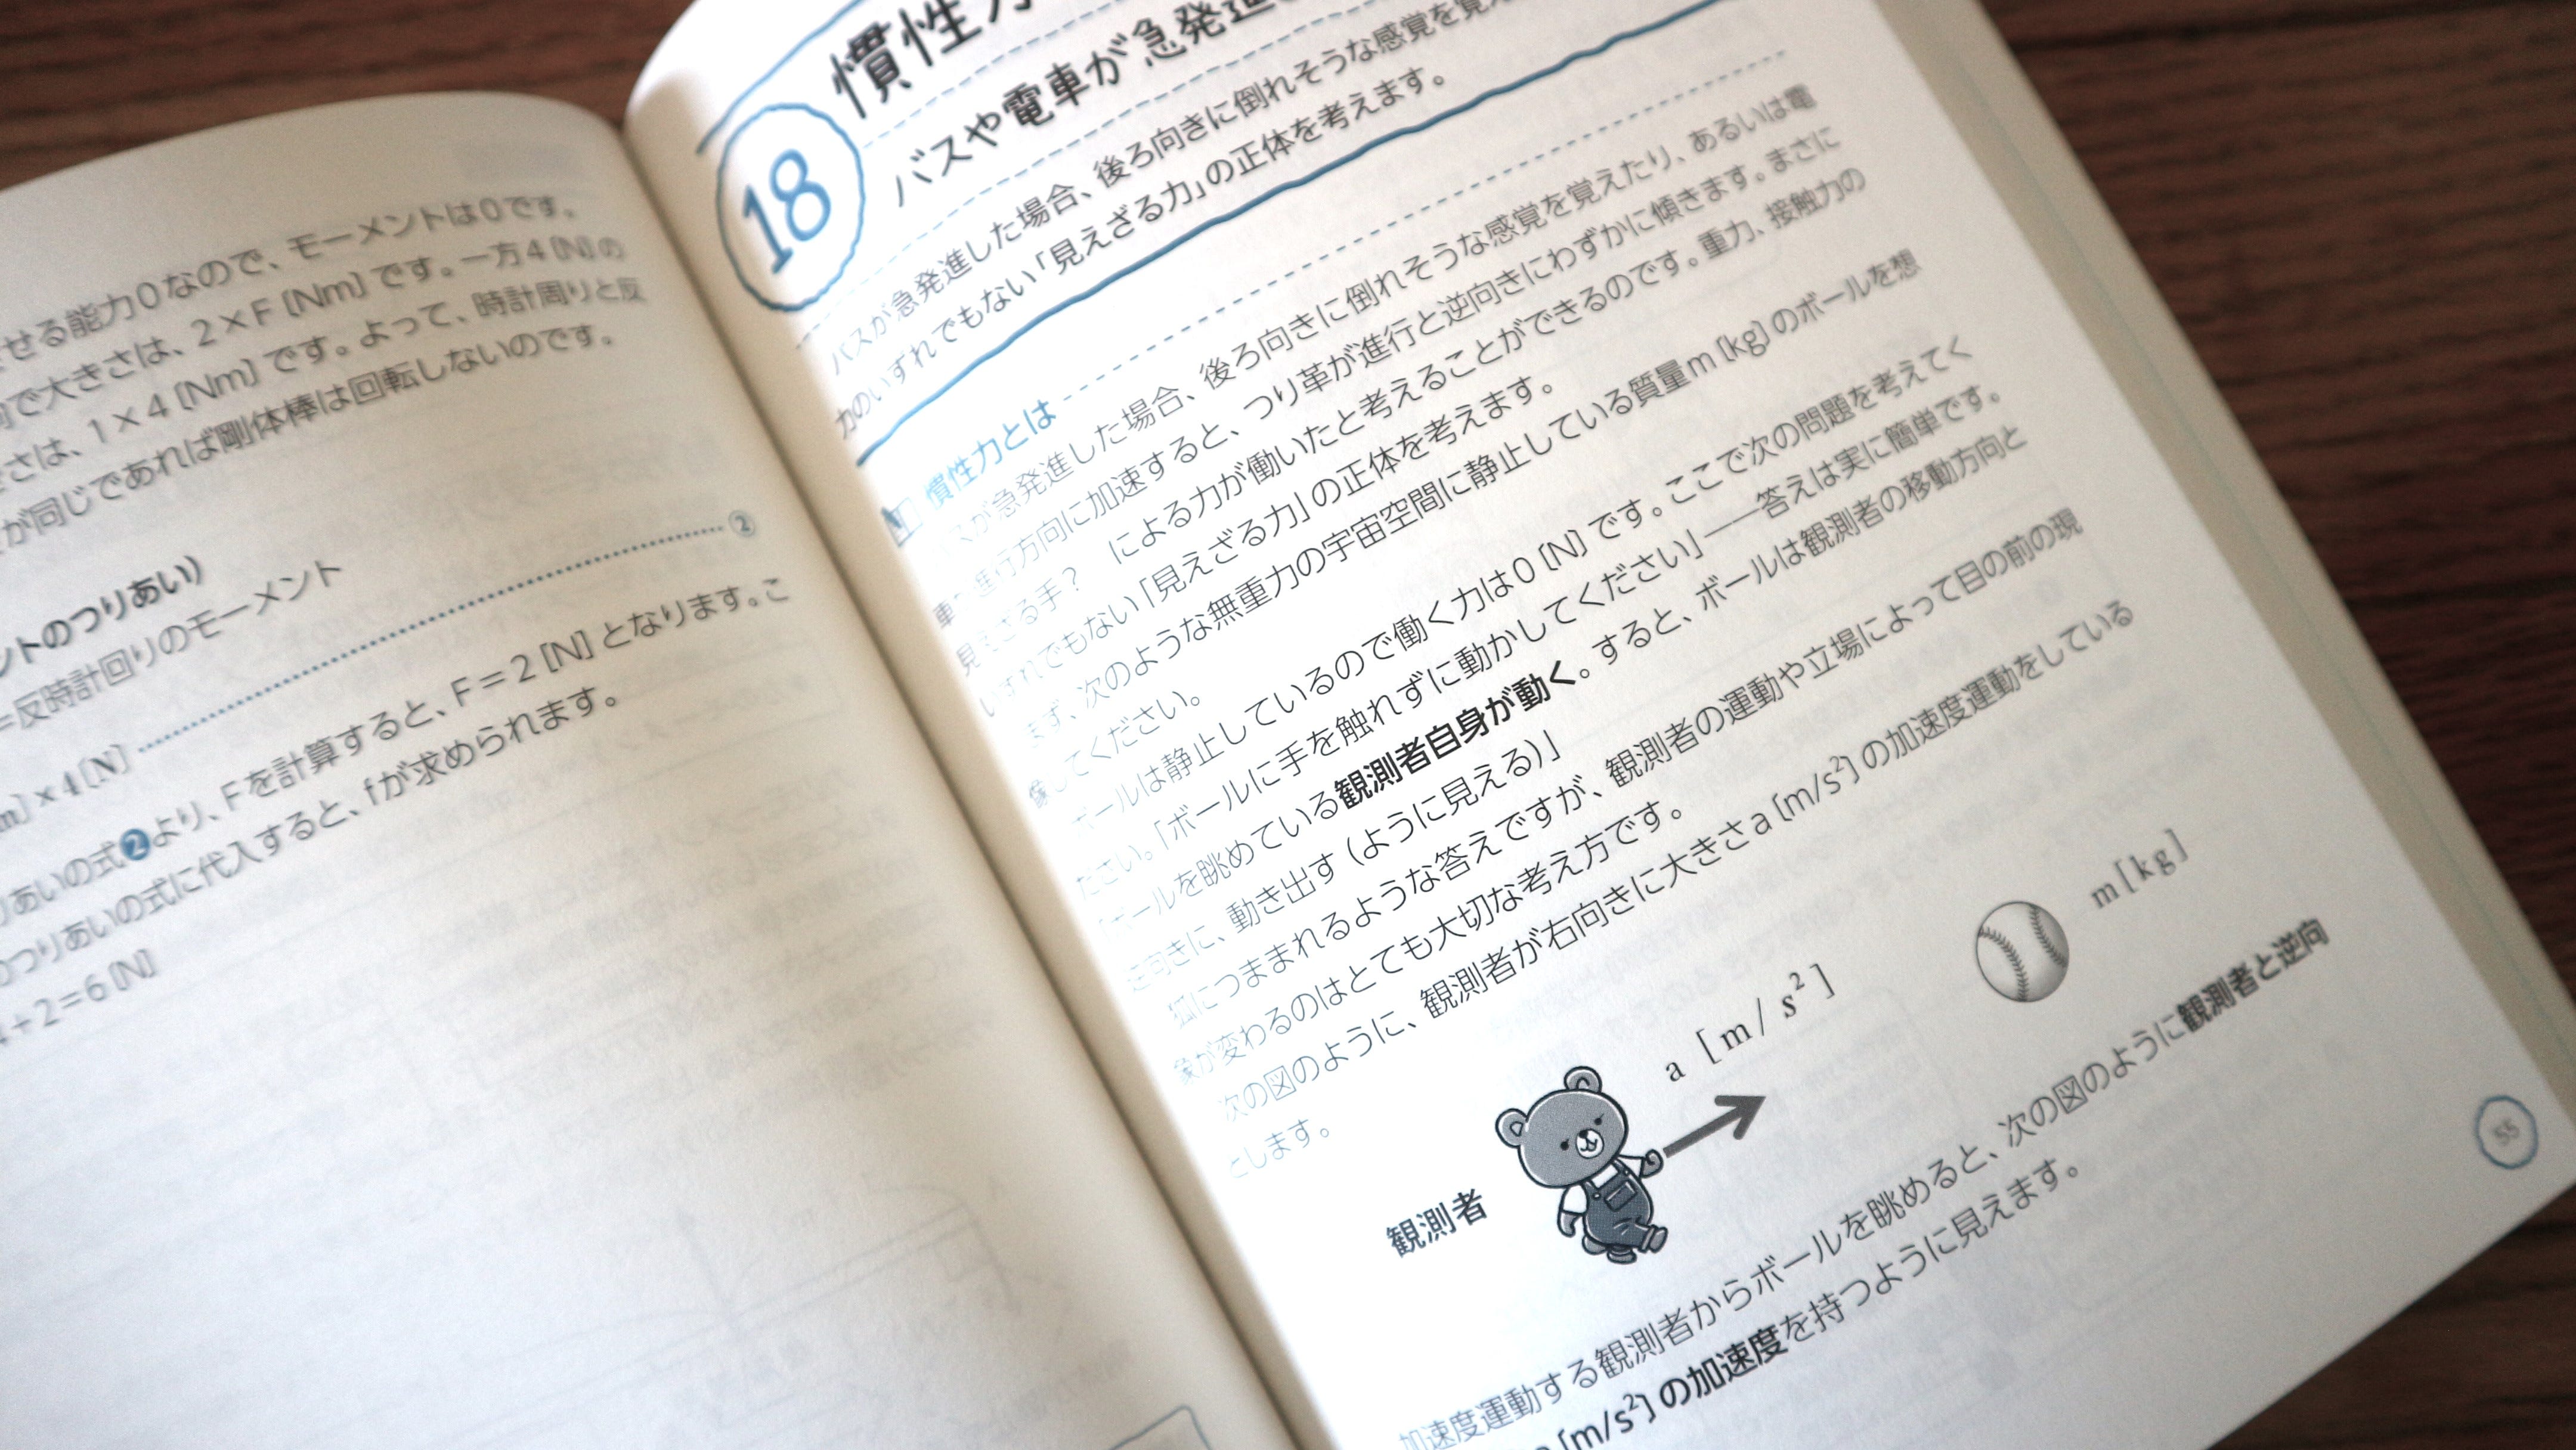 せる能力0なので、モーメントは0です。
向で大きさは、2×F [Nm] です。一方4 [N] の
きさは、1×4 [Nm] です。よって、時計周りと反
が同じであれば剛体棒は回転しないのです。
ントのつりあい)
=反時計回りのモーメント
m]×4[N] ②
りあいの式❷より、Fを計算すると、F=2 [N] となります。こ
のつりあいの式に代入すると、fが求められます。
4+2=6 [N]
18
慣性力
バスや電車が急発進
バスが急発進した場合、後ろ向きに倒れそうな感覚を覚え
力のいずれでもない「見えざる力」の正体を考えます。
慣性力とは
バスが急発進した場合、後ろ向きに倒れそうな感覚を覚えたり、あるいは電
車が進行方向に加速すると、つり革が進行と逆向きにわずかに傾きます。まさに
見えざる手? による力が働いたと考えることができるのです。重力、接触力の
いずれでもない「見えざる力」の正体を考えます。
まず、次のような無重力の宇宙空間に静止している質量m [kg] のボールを想
像してください。
ボールは静止しているので働く力は0 [N] です。ここで次の問題を考えてく
ださい。「ボールに手を触れずに動かしてください」――答えは実に簡単です。
「ボールを眺めている観測者自身が動く。すると、ボールは観測者の移動方向と
逆向きに、動き出す(ように見える)」
狐につままれるような答えですが、観測者の運動や立場によって目の前の現
象が変わるのはとても大切な考え方です。
次の図のように、観測者が右向きに大きさa [m/s²] の加速度運動をしている
とします。
m[kg]
a [m/s²]
観測者
加速度運動する観測者からボールを眺めると、次の図のように観測者と逆向
[m/s²] の加速度を持つように見えます。
55